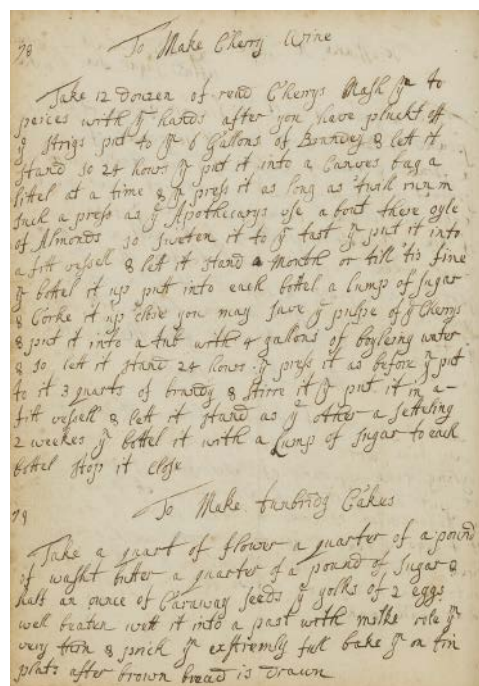 78 To Make Cherry Wine
Take 12 douzen of read Cherrys Mash ym to
peices with yr hands after you have pluckt off
ye strigs put to ym 6 Gallons of Brandey & lett it
stand so 24 hours yn put it into a Canves bag a
littel at a time & yn press it as long as twill run in
such a press as ye Apothecarys use about there oyle
of Almonds so sweten it to yr tast yn put it into
a fitt vessell & lett it stand a Month or till 'tis fine
yn bottel it up putt into each bottel a Lump of sugar
& Corke it up close you may save ye pulpe of ye Cherrys
& put it into a tub with 4 gallons of boyleing water
& so lett it stand 24 hours yn press it as before yn put
to it 3 quarts of brandy & stirre it yn put it in a
fitt vessell & lett it stand as ye other a settling
2 weekes yn bottel it with a Lump of sugar to each
bottel stop it close
79 To Make tunbridg Cakes
Take a quart of flower a quarter of a pound
of washt butter a quarter of a pound of sugar &
half an ounce of Caraway seeds ye yolks of 2 eggs
well beaten wett it into a past with milke role ym
very thin & prick ym exstremly full bake ym on tin
plats after brown bread is drawn